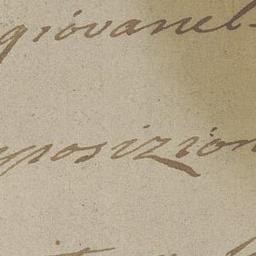 giovanel-
posizion